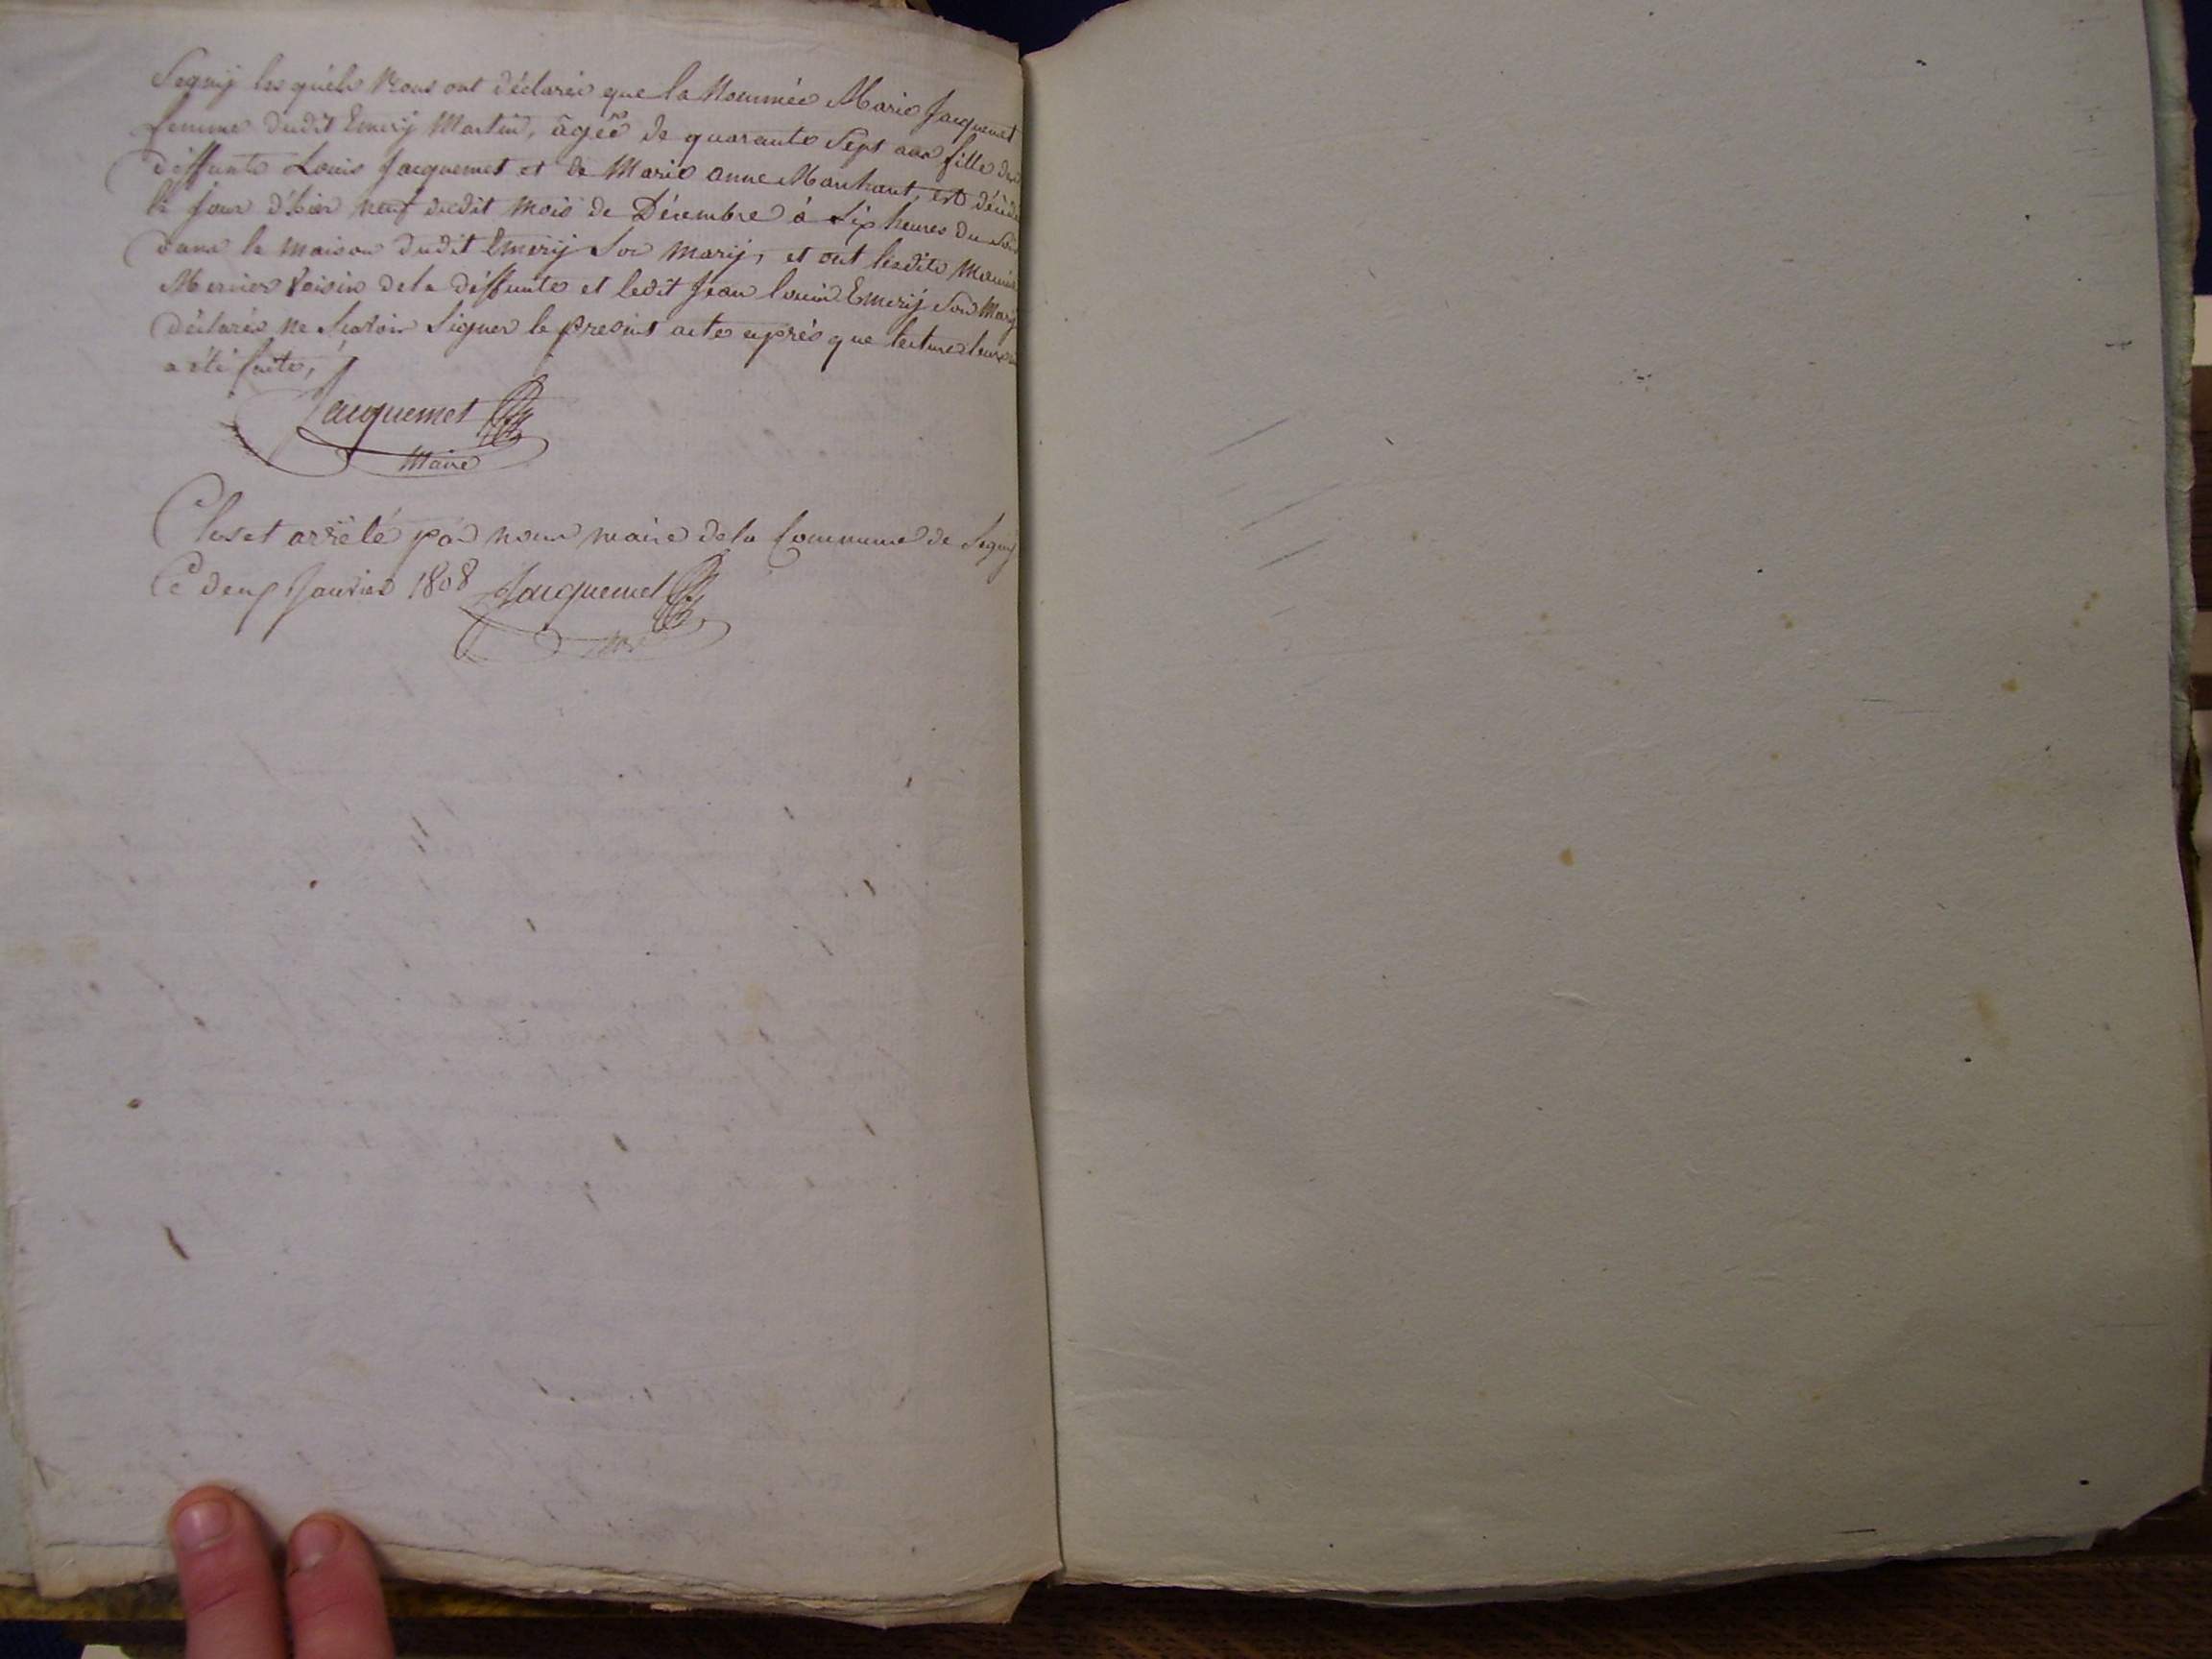 Segnÿ lesquéls Nous ont déclarés que la Nommée Marie Jacquemet
femme dudit Emerÿ Martin, âgée de quarante Sept ans fille de
déffunts Louis Jacquemet et de Marie anne Marchant, est décédé
le jour d'hier neuf dudit Mois de Décembre à Six heures du Soir
dans la maison dudit Emerÿ Son Marÿ, et ont lesdits
Mernier Voisin dela déffunte et ledit Jean louis Emerÿ Son Marÿ
déclarés ne Scavoir Signer le présent acte après que lecture leur
a été faite,
Jacquemet
Maire
Clos et arrêté par nous maire dela Commune de Segnÿ
Ce deux Janvier 1808 Jacquemet